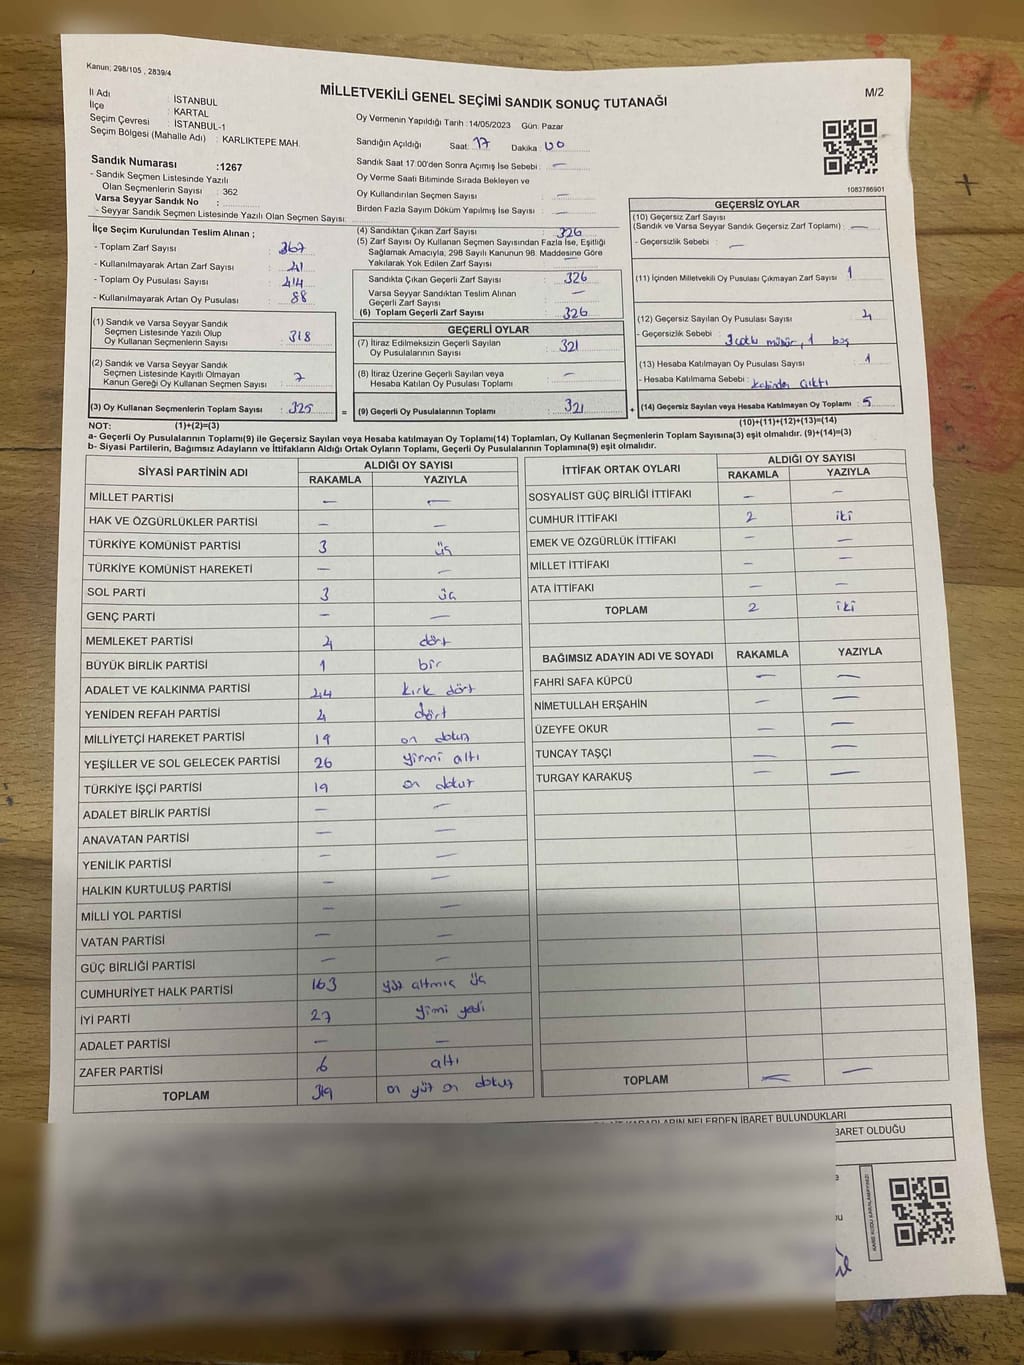 Kanun; 298/105 , 2839/4
MİLLETVEKİLİ GENEL SEÇİMİ SANDIK SONUÇ TUTANAĞI
M/2
İl Adı : İSTANBUL
İlçe : KARTAL
Seçim Çevresi : İSTANBUL-1
Seçim Bölgesi (Mahalle Adı) : KARLIKTEPE MAH.
Oy Vermenin Yapıldığı Tarih : 14/05/2023 Gün: Pazar
Sandığın Açıldığı Saat: 17 Dakika: 00
Sandık Saat 17:00'den Sonra Açımış İse Sebebi : —
Oy Verme Saati Bitiminde Sırada Bekleyen ve
Oy Kullandırılan Seçmen Sayısı —
Birden Fazla Sayım Döküm Yapılmış İse Sayısı —
Sandık Numarası :1267
- Sandık Seçmen Listesinde Yazılı
Olan Seçmenlerin Sayısı : 362
Varsa Seyyar Sandık No :
- Seyyar Sandık Seçmen Listesinde Yazılı Olan Seçmen Sayısı:
1083786901
İlçe Seçim Kurulundan Teslim Alınan ;
- Toplam Zarf Sayısı : 367
- Kullanılmayarak Artan Zarf Sayısı : 41
- Toplam Oy Pusulası Sayısı : 414
- Kullanılmayarak Artan Oy Pusulası : 88
(1) Sandık ve Varsa Seyyar Sandık
Seçmen Listesinde Yazılı Olup
Oy Kullanan Seçmenlerin Sayısı : 318
(2) Sandık ve Varsa Seyyar Sandık
Seçmen Listesinde Kayıtlı Olmayan
Kanun Gereği Oy Kullanan Seçmen Sayısı : 7
(3) Oy Kullanan Seçmenlerin Toplam Sayısı : 325 =
(4) Sandıktan Çıkan Zarf Sayısı : 326
(5) Zarf Sayısı Oy Kullanan Seçmen Sayısından Fazla İse, Eşitliği
Sağlamak Amacıyla, 298 Sayılı Kanunun 98. Maddesine Göre
Yakılarak Yok Edilen Zarf Sayısı : —
Sandıkta Çıkan Geçerli Zarf Sayısı : 326
Varsa Seyyar Sandıktan Teslim Alınan
Geçerli Zarf Sayısı : —
(6) Toplam Geçerli Zarf Sayısı : 326
GEÇERLİ OYLAR
(7) İtiraz Edilmeksizin Geçerli Sayılan
Oy Pusulalarının Sayısı : 321
(8) İtiraz Üzerine Geçerli Sayılan veya
Hesaba Katılan Oy Pusulası Toplamı : —
(9) Geçerli Oy Pusulalarının Toplamı : 321 +
GEÇERSİZ OYLAR
(10) Geçersiz Zarf Sayısı
(Sandık ve Varsa Seyyar Sandık Geçersiz Zarf Toplamı) : —
- Geçersizlik Sebebi : —
(11) İçinden Milletvekili Oy Pusulası Çıkmayan Zarf Sayısı : 1
(12) Geçersiz Sayılan Oy Pusulası Sayısı : 4
- Geçersizlik Sebebi : 3 çoklu mühür, 1 boş
(13) Hesaba Katılmayan Oy Pusulası Sayısı : 1
- Hesaba Katılmama Sebebi : kabinden çıktı
(14) Geçersiz Sayılan veya Hesaba Katılmayan Oy Toplamı : 5
NOT: (1)+(2)=(3)
(10)+(11)+(12)+(13)=(14)
a- Geçerli Oy Pusulalarının Toplamı(9) ile Geçersiz Sayılan veya Hesaba katılmayan Oy Toplamı(14) Toplamları, Oy Kullanan Seçmenlerin Toplam Sayısına(3) eşit olmalıdır. (9)+(14)=(3)
b- Siyasi Partilerin, Bağımsız Adayların ve İttifakların Aldığı Ortak Oyların Toplamı, Geçerli Oy Pusulalarının Toplamına(9) eşit olmalıdır.
SİYASİ PARTİNİN ADI ALDIĞI OY SAYISI
RAKAMLA YAZIYLA
MİLLET PARTİSİ — —
HAK VE ÖZGÜRLÜKLER PARTİSİ — —
TÜRKİYE KOMÜNİST PARTİSİ 3 üç
TÜRKİYE KOMÜNİST HAREKETİ — —
SOL PARTİ 3 üç
GENÇ PARTİ — —
MEMLEKET PARTİSİ 4 dört
BÜYÜK BİRLİK PARTİSİ 1 bir
ADALET VE KALKINMA PARTİSİ 44 kırk dört
YENİDEN REFAH PARTİSİ 4 dört
MİLLİYETÇİ HAREKET PARTİSİ 19 on dokuz
YEŞİLLER VE SOL GELECEK PARTİSİ 26 yirmi altı
TÜRKİYE İŞÇİ PARTİSİ 19 on dokuz
ADALET BİRLİK PARTİSİ — —
ANAVATAN PARTİSİ — —
YENİLİK PARTİSİ — —
HALKIN KURTULUŞ PARTİSİ — —
MİLLİ YOL PARTİSİ — —
VATAN PARTİSİ — —
GÜÇ BİRLİĞİ PARTİSİ — —
CUMHURİYET HALK PARTİSİ 163 yüz altmış üç
İYİ PARTİ 27 yimi yedi
ADALET PARTİSİ — —
ZAFER PARTİSİ 6 altı
TOPLAM 319 on yüz on dokuz
İTTİFAK ORTAK OYLARI ALDIĞI OY SAYISI
RAKAMLA YAZIYLA
SOSYALİST GÜÇ BİRLİĞİ İTTİFAKI — —
CUMHUR İTTİFAKI 2 iki
EMEK VE ÖZGÜRLÜK İTTİFAKI — —
MİLLET İTTİFAKI — —
ATA İTTİFAKI — —
TOPLAM 2 iki
BAĞIMSIZ ADAYIN ADI VE SOYADI RAKAMLA YAZIYLA
FAHRİ SAFA KÜPCÜ — —
NİMETULLAH ERŞAHİN — —
ÜZEYFE OKUR — —
TUNCAY TAŞÇI — —
TURGAY KARAKUŞ — —
TOPLAM — —
NELERDEN İBARET BULUNDUKLARI
BARET OLDUĞU